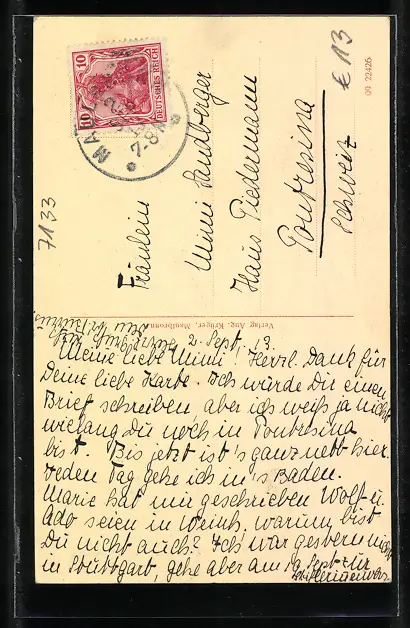 10
DEUTSCHES REICH
10
7-8
€ 13
09 22426
7133
Fräulein
Mimi Sandberger
Haus Piedermann
Pontresina
Schweiz
Verlag Aug. Krüger, Maulbronn
2. Sept. 13.
Meine liebe Mimi! Herzl. Dank für
Deine liebe Karte. Ich würde Dir einen
Brief schreiben, aber ich weiß ja nicht
wielang Du noch in Pontresina
bist. Bis jetzt ist's ganz nett hier.
Jeden Tag gehe ich in's Baden.
Marie hat mir geschrieben Wolf u.
Ado seien in Weinh. warum bist
Du nicht auch? Ich war gestern
in Stuttgart, gehe aber am Sept. zur